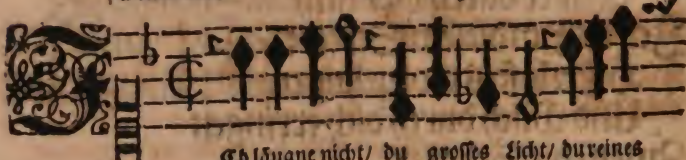 Ch läugne nicht/ du grosses Licht/ du reines